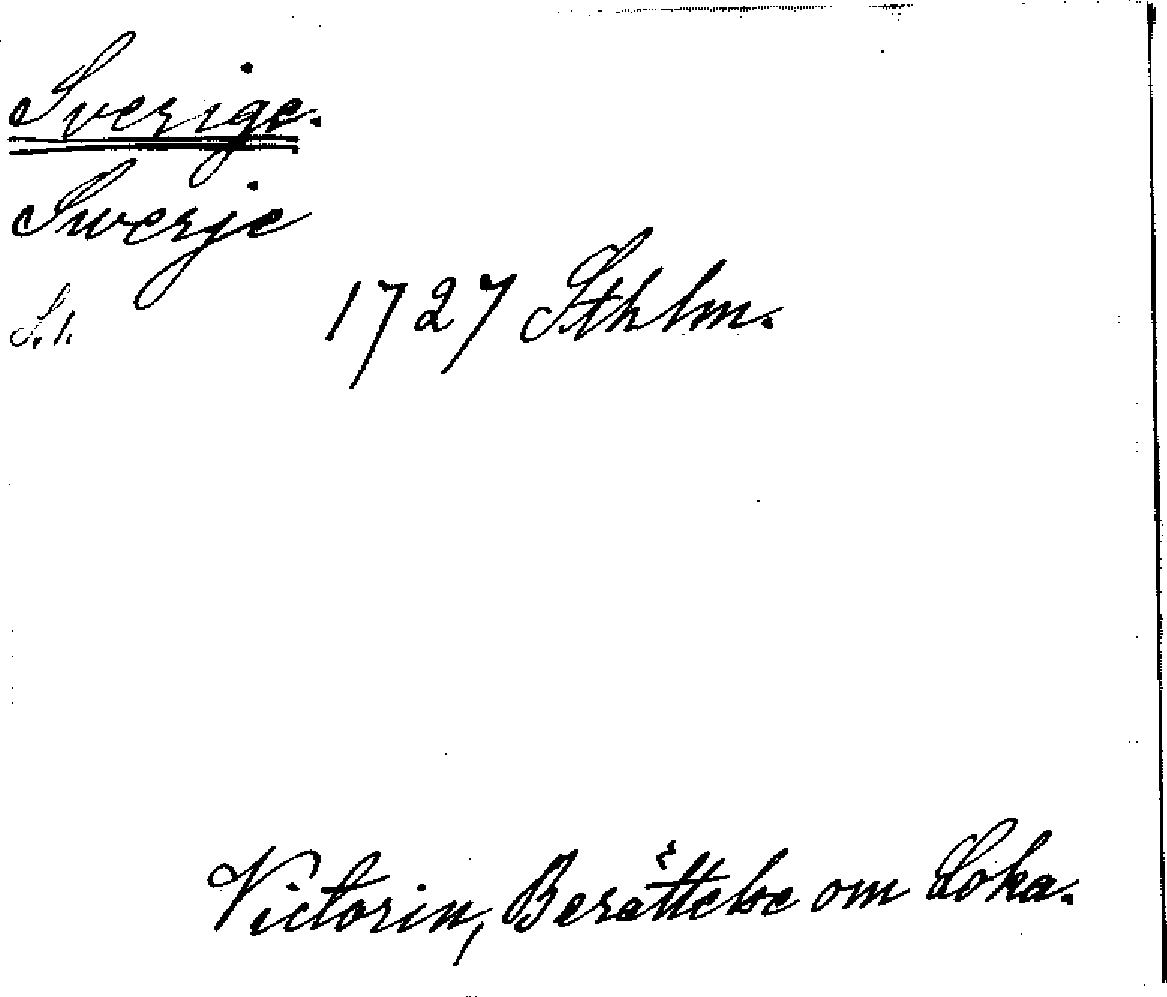 Sverige.
Swerje
S. 1.
1727 Sthlm.
Victorin, Berättelse om Loka.